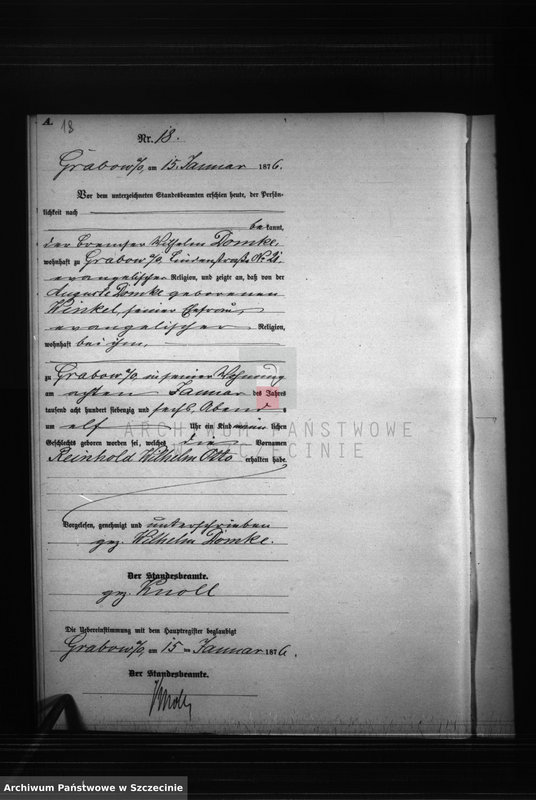 A.
18
Nr. 18.
Grabow a/O am 15. Januar 1876.
Vor dem unterzeichneten Standesbeamten erschien heute, der Persön-
lichkeit nach
bekannt,
der Bremser Wilhelm Domke,
wohnhaft zu Grabow a/O, Lindenstraße No 21.
evangelischer Religion, und zeigte an, daß von der
Auguste Domke geborenen
Winkel, seiner Ehefrau,
evangelischer Religion,
wohnhaft bei ihm,
zu Grabow a/O in seiner Wohnung
am achten Januar des Jahrs
tausend acht hundert siebenzig und sechs, Abends
um elf Uhr ein Kind männlichen
Geschlechts geboren worden sei, welches die Vornamen
Reinhold Wilhelm Otto erhalten habe.
Vorgelesen, genehmigt und unterschrieben
gez. Wilhelm Domke.
Der Standesbeamte.
gez. Knoll
Die Uebereinstimmung mit dem Hauptregister beglaubigt
Grabow a/O am 15 ten Januar 1876.
Der Standesbeamte.
Knoll
ARCHIWUM PAŃSTWOWE
W SZCZECINIE
Archiwum Państwowe w Szczecinie